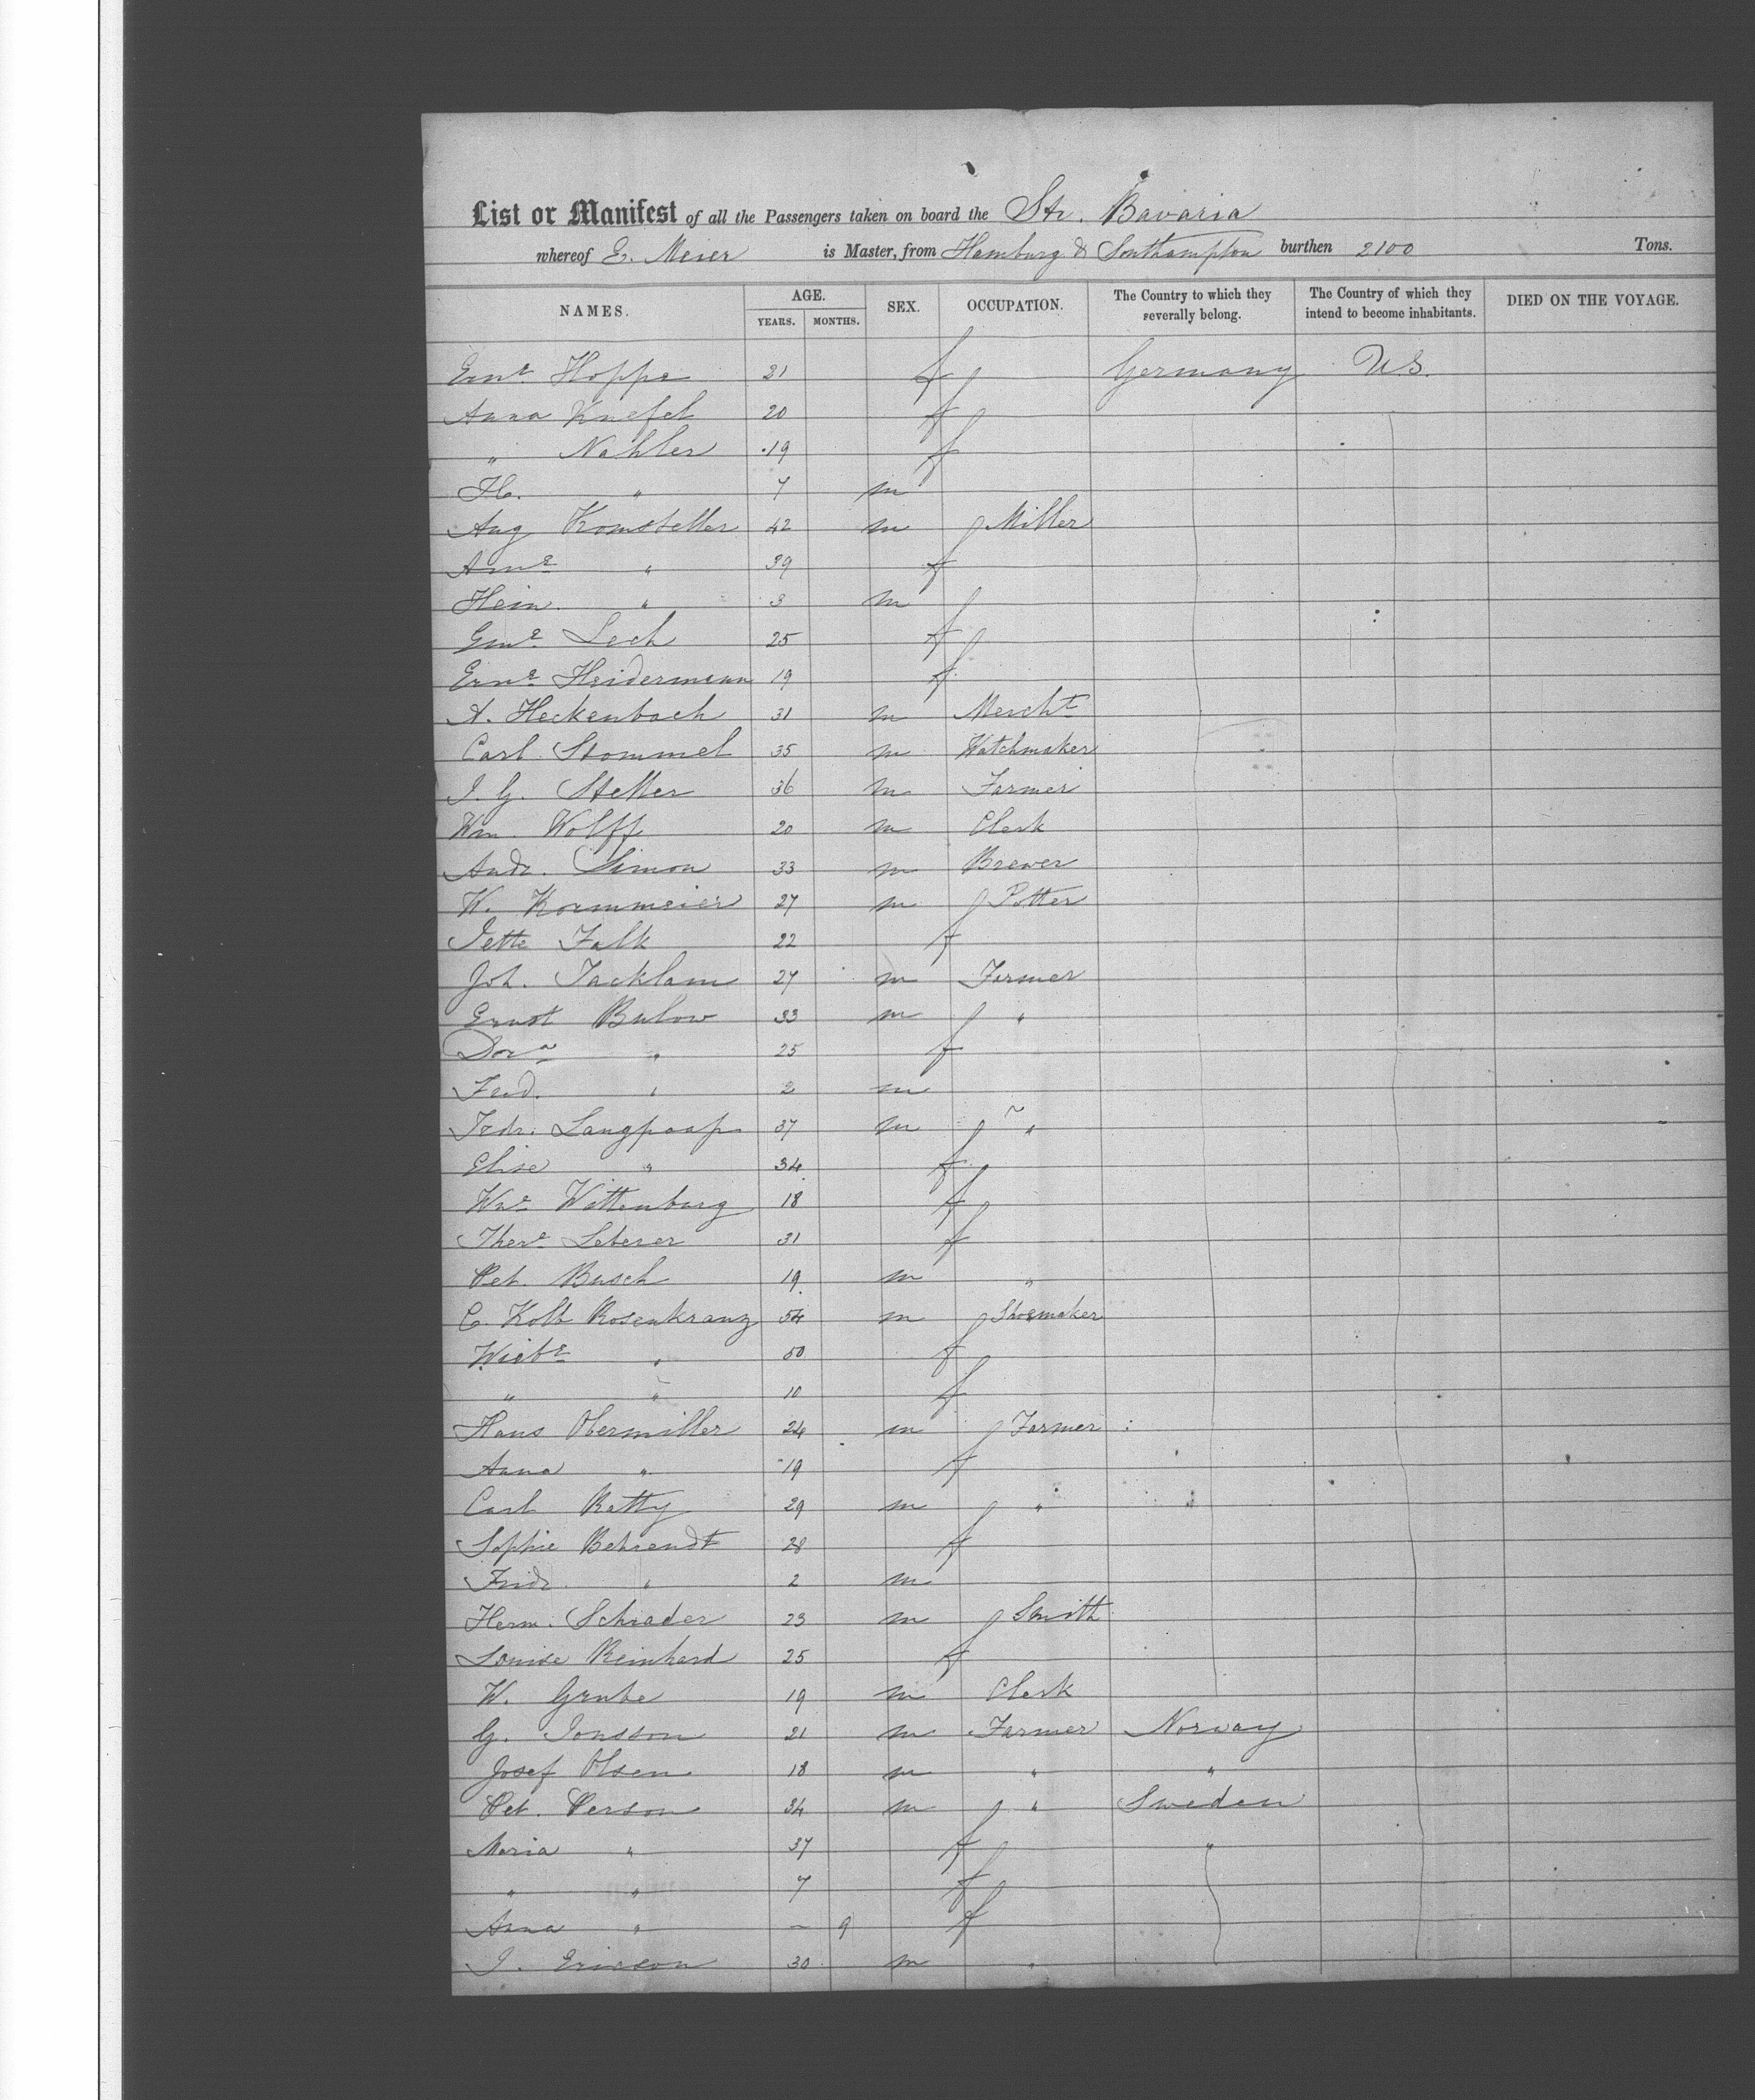 List or Manifest of all the Passengers taken on board the Str. Bavaria
whereof E. Meier is Master, from Hamburg & Southampton burthen 2100 Tons.
NAMES. AGE. YEARS. MONTHS. SEX. OCCUPATION. The Country to which they severally belong. The Country of which they intend to become inhabitants. DIED ON THE VOYAGE.
Erne Hoppe 21 f Germany U.S.
Anna Knefel 20 f
" Nahler 19 f
H. " 7 m
Aug Komsteller 42 m Miller
" 39 f
Hein. " 3 m
Lech 25 f
Erne Heidermann 19 f
A. Heckenbach 31 m Mercht
Carl Stommel 35 m Watchmaker
J. G. Steller 36 m Farmer
Wm. Wolff 20 m Clerk
Andr. Simon 33 m Brewer
W. Kornmeier 27 m Potter
Jette Falk 22 f
Joh. Tacklam 27 m Farmer
Ernst Bulow 33 m "
Dora " 25 f
Ferd. " 2 m
Fedr. Langpaap 37 m "
Elise " 34 f
Wme Wittenburg 18 f
There Leberer 31 f
Pet. Busch 19 m "
C. Kolb Rosenkranz 54 m Shoemaker
Wiebe " 50 f
" " 10 f
Hans Obermiller 24 m Farmer
Anna " 19 f
Carl Ratty 29 m "
Sophie Behrendt 28 f
Fridr. " 2 m
Herm. Schrader 23 m Smith
Louise Reinhard 25 f
W. Grube 19 m Clerk
G. Jonsson 21 m Farmer Norway
Josef Olsen 18 m " "
Pet. Person 34 m " Sweden
Maria " 37 f "
" " 7 f
Anna " – 9 f
J. Ericson 30 m "